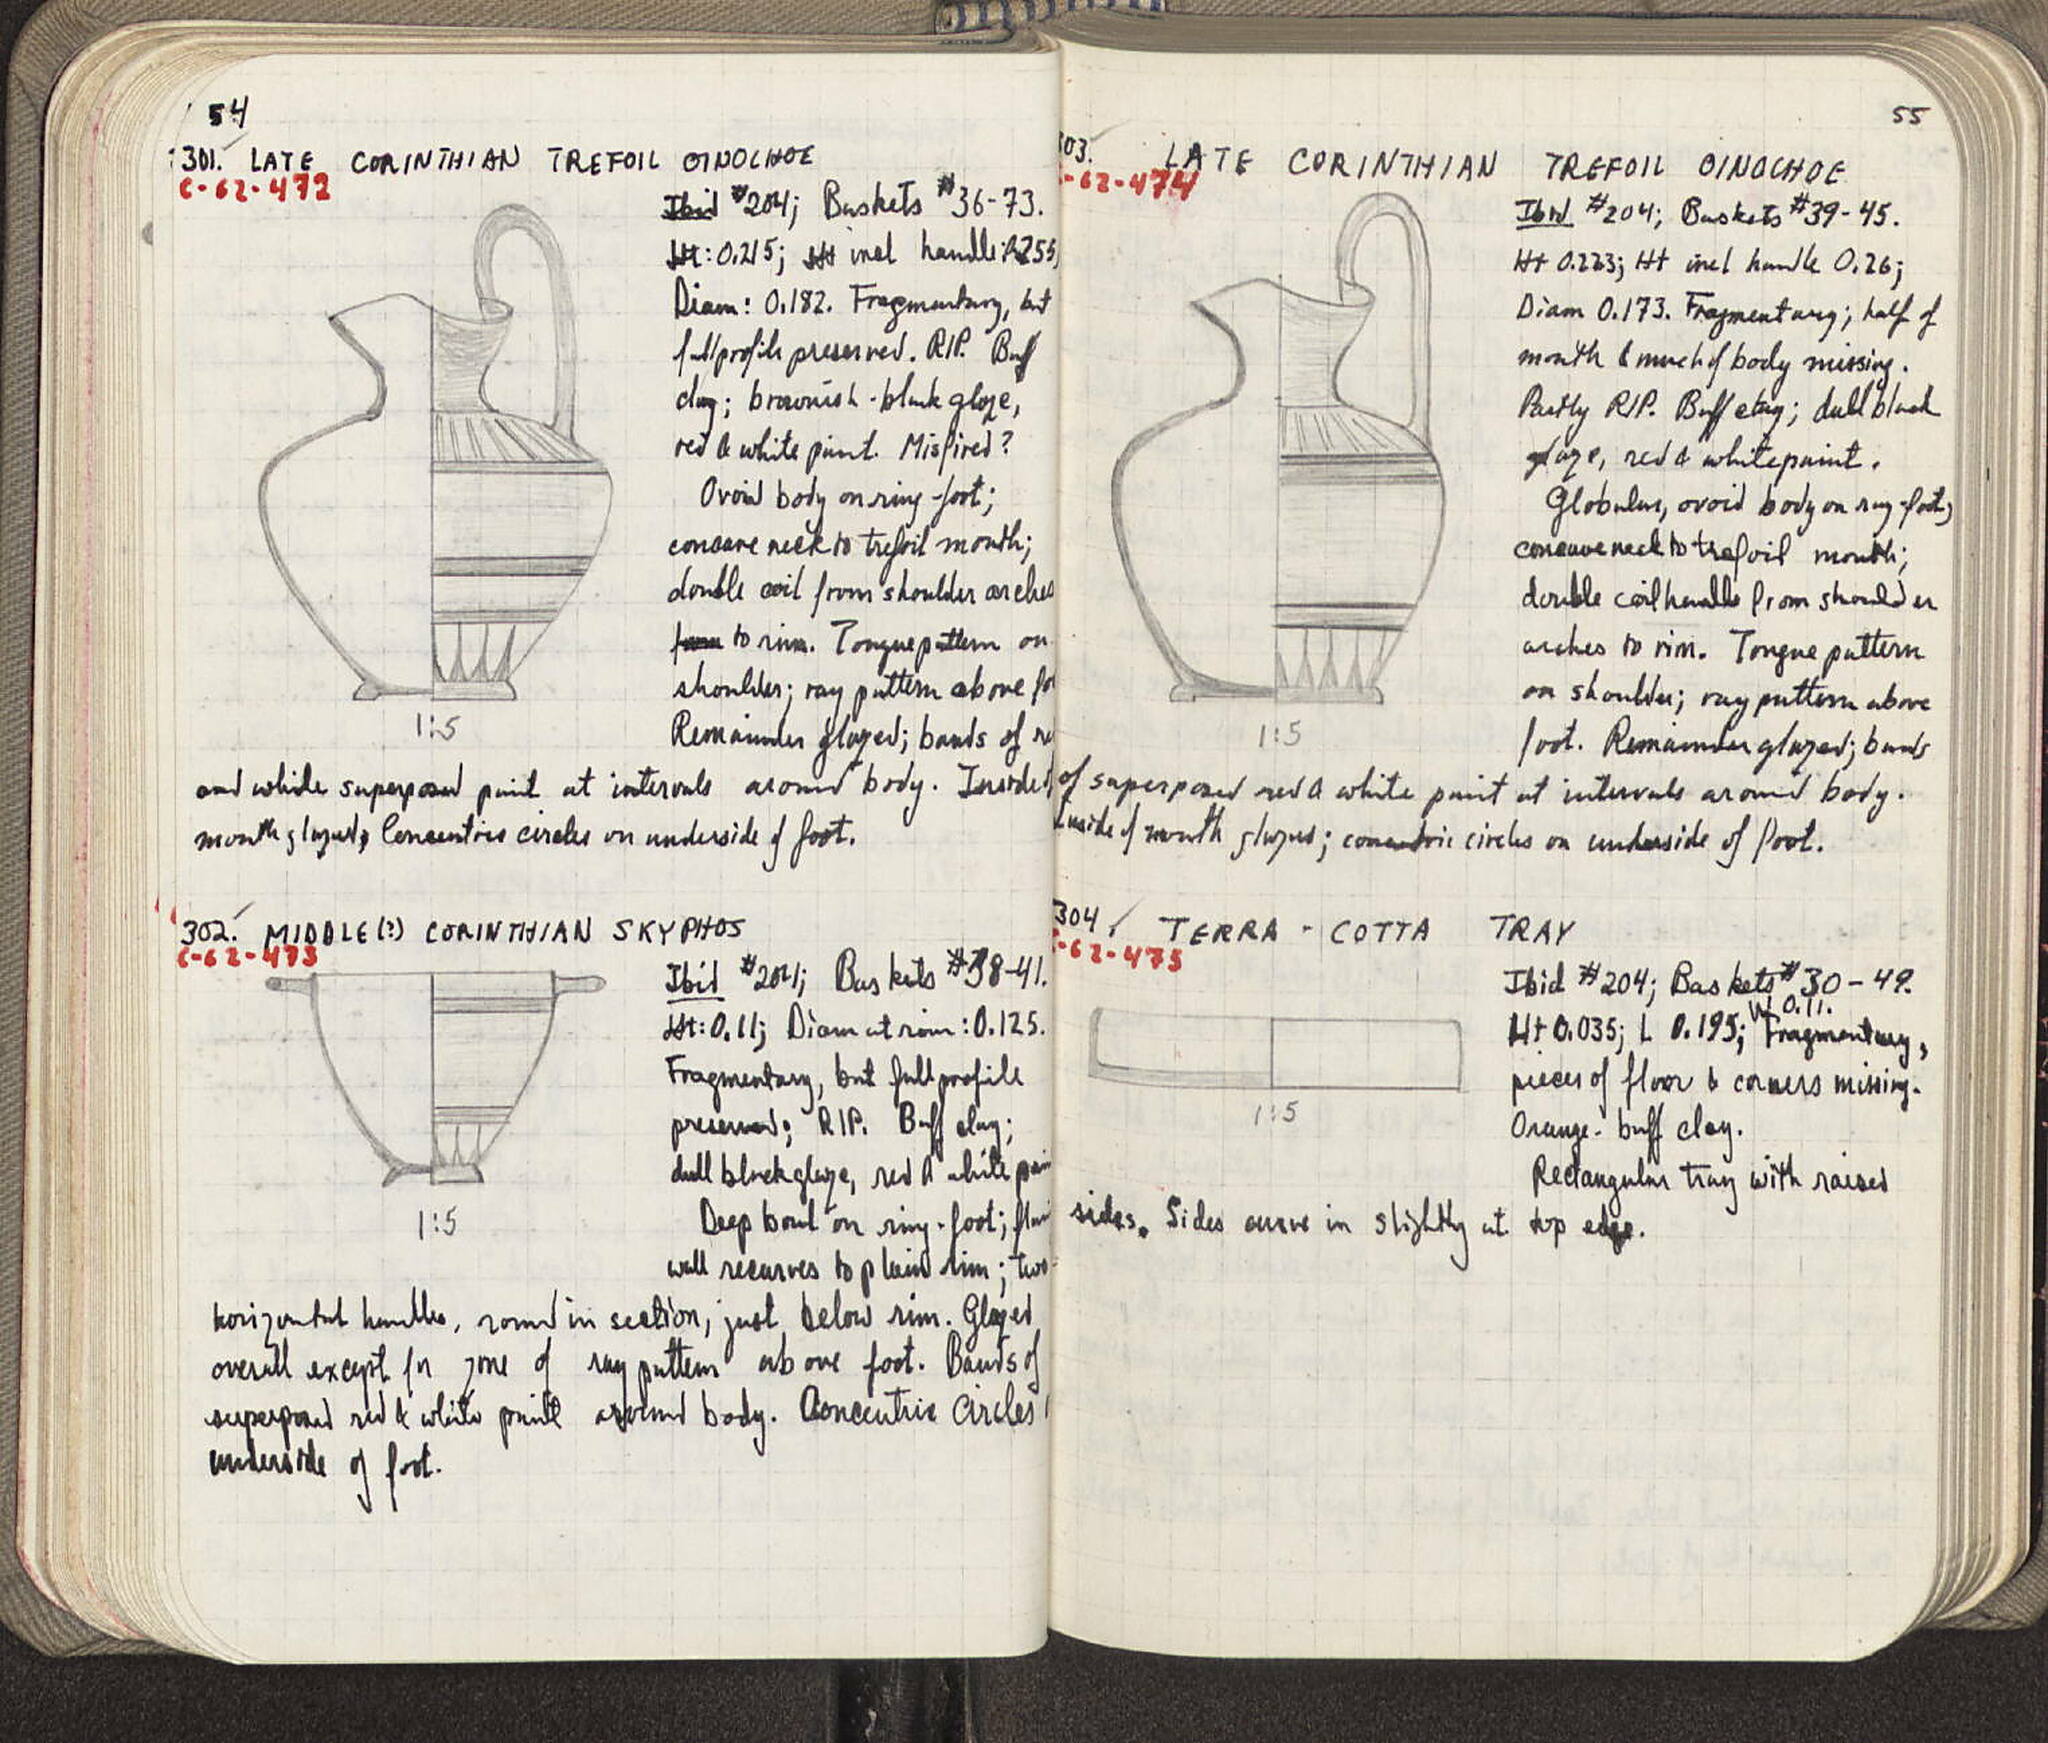 54
301. LATE CORINTHIAN TREFOIL OINOCHOE
C-62-472
Ibid #204; Baskets #36-73.
Ht: 0.215; Ht incl handle: 0.255;
Diam: 0.182. Fragmentary, but
full profile preserved. R/P. Buff
clay; brownish-black glaze,
red & white paint. Misfired?
Ovoid body on ring-foot;
concave neck to trefoil mouth;
double coil from shoulder arches
to rim. Tongue pattern on
shoulder; ray pattern above
Remainder glazed; bands of
1:5
and white superposed paint at intervals around body. Inside of
mouth glazed; Concentric circles on underside of foot.
302. MIDDLE(?) CORINTHIAN SKYPHOS
C-62-473
Ibid #204; Baskets #38-41.
Ht: 0.11; Diam at rim: 0.125.
Fragmentary, but full profile
preserved; R/P. Buff clay;
dull black glaze, red & white
Deep bowl on ring-foot;
wall recurves to plain rim; two
1:5
horizontal handles, round in section, just below rim. Glazed
overall except for zone of ray pattern above foot. Bands of
superposed red & white paint around body. Concentric circles
underside of foot.
55
303. LATE CORINTHIAN TREFOIL OINOCHOE
C-62-474
Ibid #204; Baskets #39-45.
Ht 0.223; Ht incl handle 0.26;
Diam 0.173. Fragmentary; half of
mouth & much of body missing.
Partly R/P. Buff clay; dull black
glaze, red & white paint.
Globular, ovoid body on ring-foot;
concave neck to trefoil mouth;
double coil handle from shoulder
arches to rim. Tongue pattern
on shoulder; ray pattern above
foot. Remainder glazed; bands
1:5
of superposed red & white paint at intervals around body.
Inside of mouth glazed; concentric circles on underside of foot.
304. TERRA-COTTA TRAY
C-62-475
Ibid #204; Baskets #30-49.
Ht 0.035; L 0.195; W 0.11. Fragmentary,
pieces of floor & corners missing.
Orange-buff clay.
Rectangular tray with raised
1:5
sides. Sides curve in slightly at top edge.